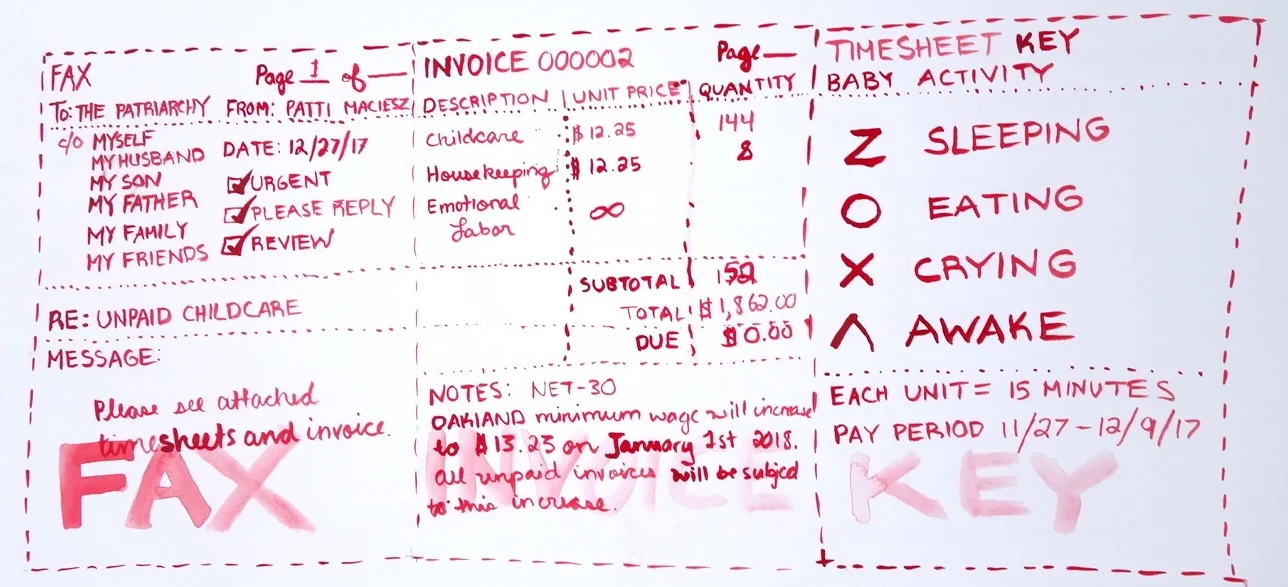 FAX
Page 1 of
TO: THE PATRIARCHY FROM: PATTI MACIESZ
c/o MYSELF
MY HUSBAND
MY SON
MY FATHER
MY FAMILY
MY FRIENDS
DATE: 12/27/17
URGENT
PLEASE REPLY
REVIEW
RE: UNPAID CHILDCARE
MESSAGE:
Please see attached
timesheets and invoice.
FAX
INVOICE 000002 Page
DESCRIPTION UNIT PRICE QUANTITY
Childcare $12.25 144
Housekeeping $12.25 8
Emotional ∞
Labor
SUBTOTAL 152
TOTAL $1,862.00
DUE $0.00
NOTES: NET-30
OAKLAND minimum wage will increase
to $13.23 on January 1st 2018.
all unpaid invoices will be subject
to this increase.
INVOICE
TIMESHEET KEY
BABY ACTIVITY
Z SLEEPING
O EATING
X CRYING
Λ AWAKE
EACH UNIT = 15 MINUTES
PAY PERIOD 11/27-12/9/17
KEY